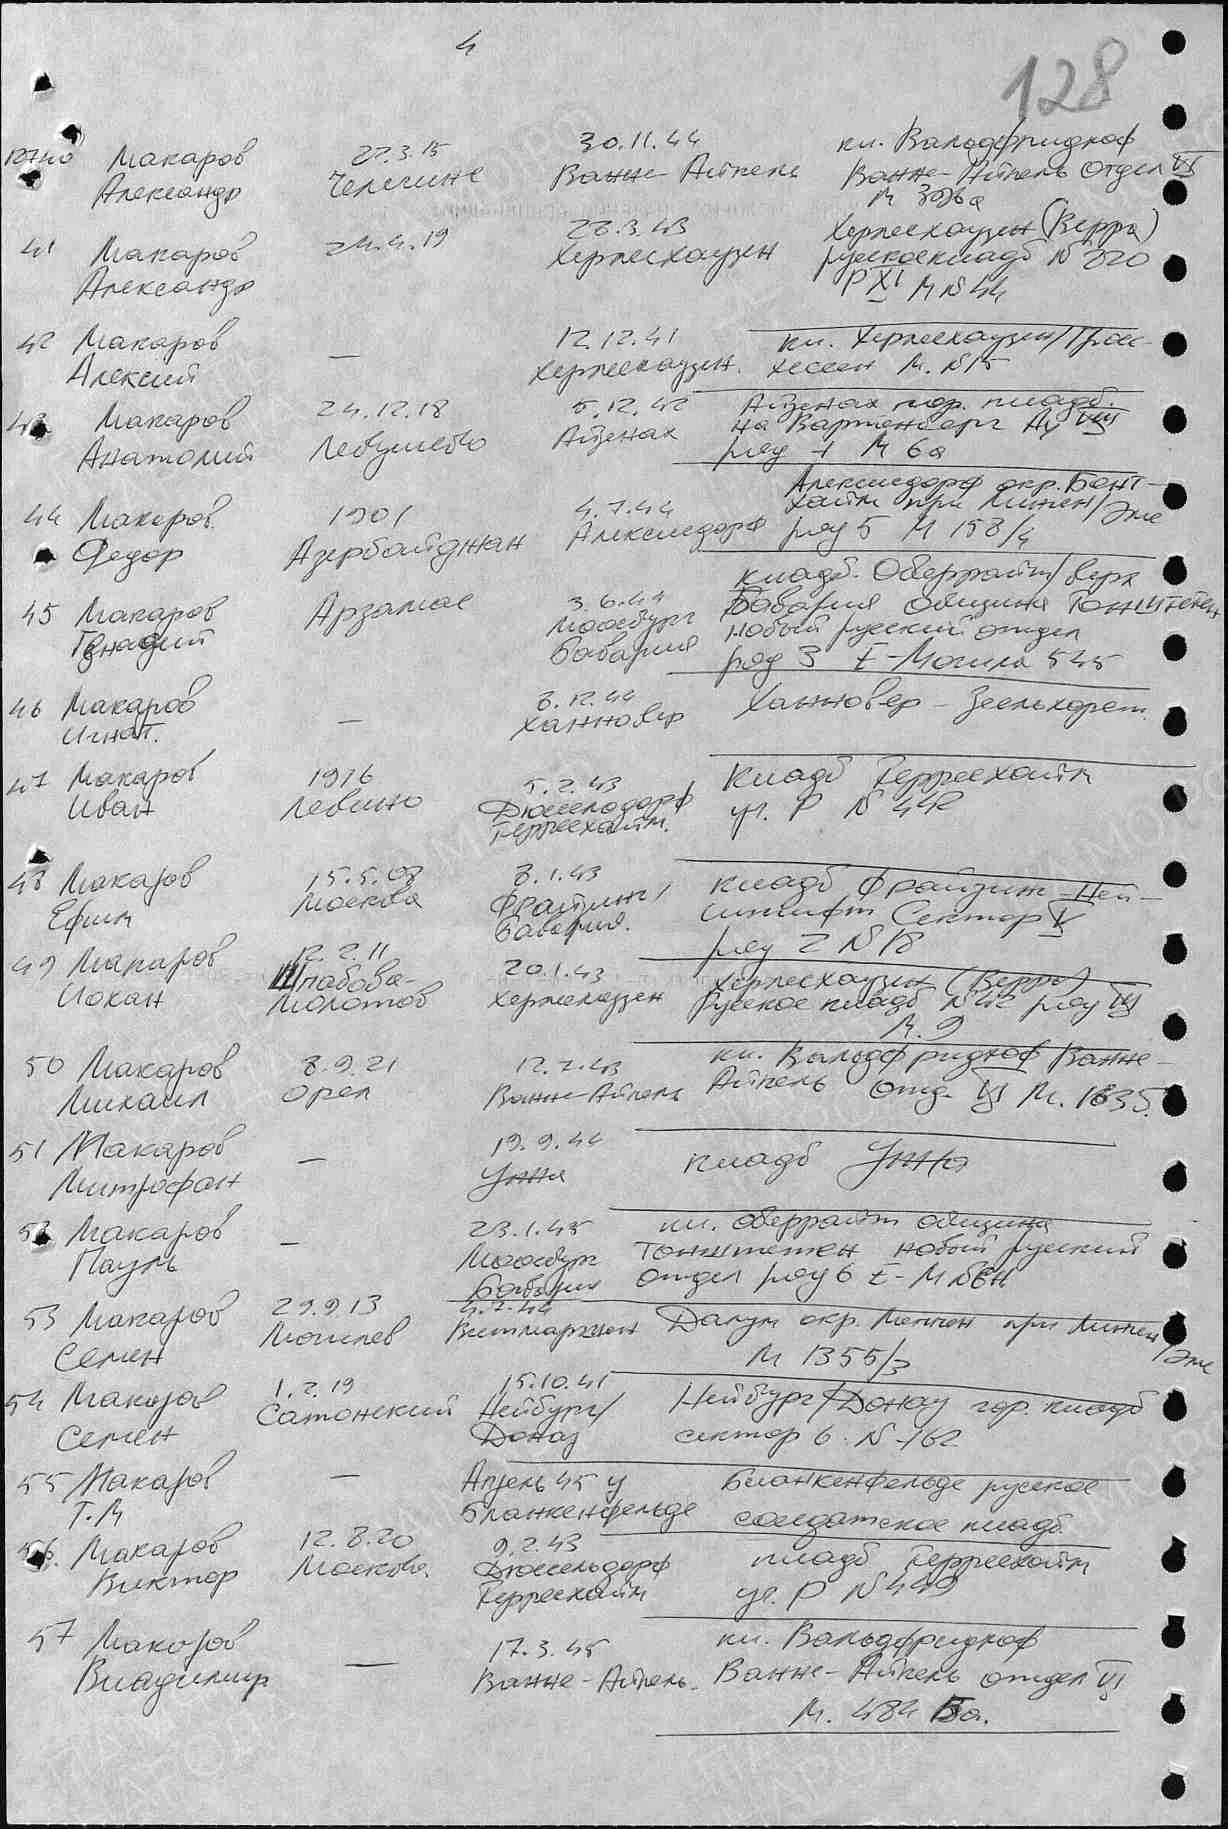 4
128
Макаров Александр 27.3.15 30.11.44 Ванне-Айкель кл. Вальдфридхоф
Ванне-Айкель отдел VI
41 Макаров Александр 24.4.19 22.3.43 Херлесхаузен Херлесхаузен (Верра)
русское кладб N 220
Р XI М N 44
42 Макаров Алексий — 12.12.41 Херлесхаузен. кл. Херлесхаузен/
хессен М. N 15
43 Макаров Анатолий 24.12.18 Левушево 5.12.42 Айзенах Айзенах гор. кладб.
на Вартенберг VIII
ряд 1 М 6а
44 Макаров Федор 1901 Азербайджан 4.7.44 Алексисдорф Алексисдорф окр. Бент-
хайм при Линген/Эмс
ряд 5 М 158/4
45 Макаров Генадий Арзамас 3.6.44 Моосбург Бавария кладб. Оберрайт/верх
Бавария община Тонштетен
новый русский отдел
ряд 3 E-Могила 545
46 Макаров Игнат. — 8.12.44 Ханновер Ханновер - Зеельхорст.
47 Макаров Иван 1916 Левино 5.2.43 Дюссельдорф Герресхайм. Кладб Герресхайм
уч. Р N 442
48 Макаров Ефим 15.5.08 Москва 8.1.43 Фрайзинг/ Бавария. кладб Фрайзинг - Ней-
штифт Сектор V
ряд 2 N 18
49 Макаров Иохан 12.2.11 Молотов 20.1.43 Херлесхаузен Херлесхаузен (Верра)
Русское кладб N 42 ряд VII
М. 9
50 Макаров Михаил 8.9.21 Орел 12.7.43 Ванне-Айкель кл. Вальдфридхоф Ванне-
Айкель отд. VI М. 1835.
51 Макаров Митрофан — 19.9.44 Унна кладб Унна
52 Макаров Пауль — 23.1.45 Моосбург Бавария кл. Оберрайт община
Тонштетен новый русский
отдел ряд 6 E-М
53 Макаров Семен 29.9.13 Могилев 4.7.44 Витмаршен Далум окр. Меппен при Линген/Эмс
М 1355/3
54 Макаров Семен 1.2.19 Сатонский 15.10.41 Нейбург/ Донау Нейбург/Донау гор. кладб
сектор 6. N-162
55 Макаров Т.М — Апрель 45 у Бланкенфельде Бланкенфельде русское
солдатское кладб
56. Макаров Виктор 12.8.20 Москва. 9.2.43 Дюссельдорф Герресхайм кладб Герресхайм
уч. Р N 449
57 Макаров Владимир — 17.3.45 Ванне-Айкель. кл. Вальдфридхоф
Ванне-Айкель отдел VI
М. 484